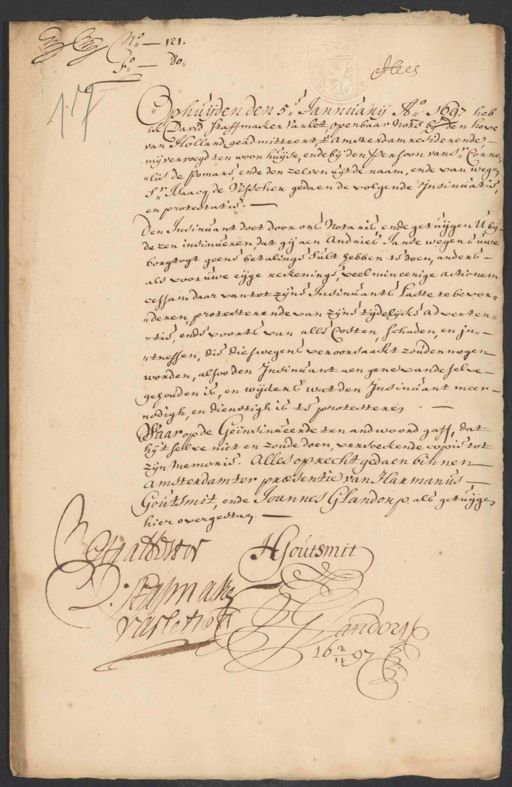 No — 121.
Fo — do
1.17
Op huijden den 5e Jannuarij Ao 1697 heb
ik David Staffmaker Varlet, openbaar Nots bij den hove
van Holland geadmitteert, t' Amsterdam residerende
mij vervoegt ten woonhuijse, ende bij den Persoon van Sr Corne
lis de Pomare, ende den zelven uijt de naam, ende van wegen
Sr Isaacq de Visscher gedaen de volgende Insinuatie,
en protestatie. —
Den Insinuant doet door ons Notaris ende getuijgen U bij
dezen insinueren dat gij aen Andries Janse wegens uwe
borgtogt geene betalinge sult hebben te doen, anders
als voor uwe eijge reckeninge, veel min eenige actionem
cessam daar van tot zijns Insinuants Laste te bevor=
=deren, protesterende van zijne tijdelijke adverten=
=tie, ende voorts van alle Costen, schaden, en in=
=tressen, die dieswegen veroorsaakt zouden mogen
worden, alsoo den Insinuant aen gene van deselve
gehouden is, en wijders wat den Insinuant meer
nodigh, en dienstigh is te protesteren. —
Waar op de Geinsinueerde ten andwoord gaff, dat
hij t selve niet en zoude doen, versoekende copia tot
zijn memorie. Alles oprecht gedaen binnen
Amsterdam ter præsentie van Harmanus
Goutsmit, ende Joannes Glandorp als getuijge
hier over gestaen —
Quod attestor
H Goutsmit
D: Stafmaker
Varlet Nots
J Glandorp
16 2/12 97